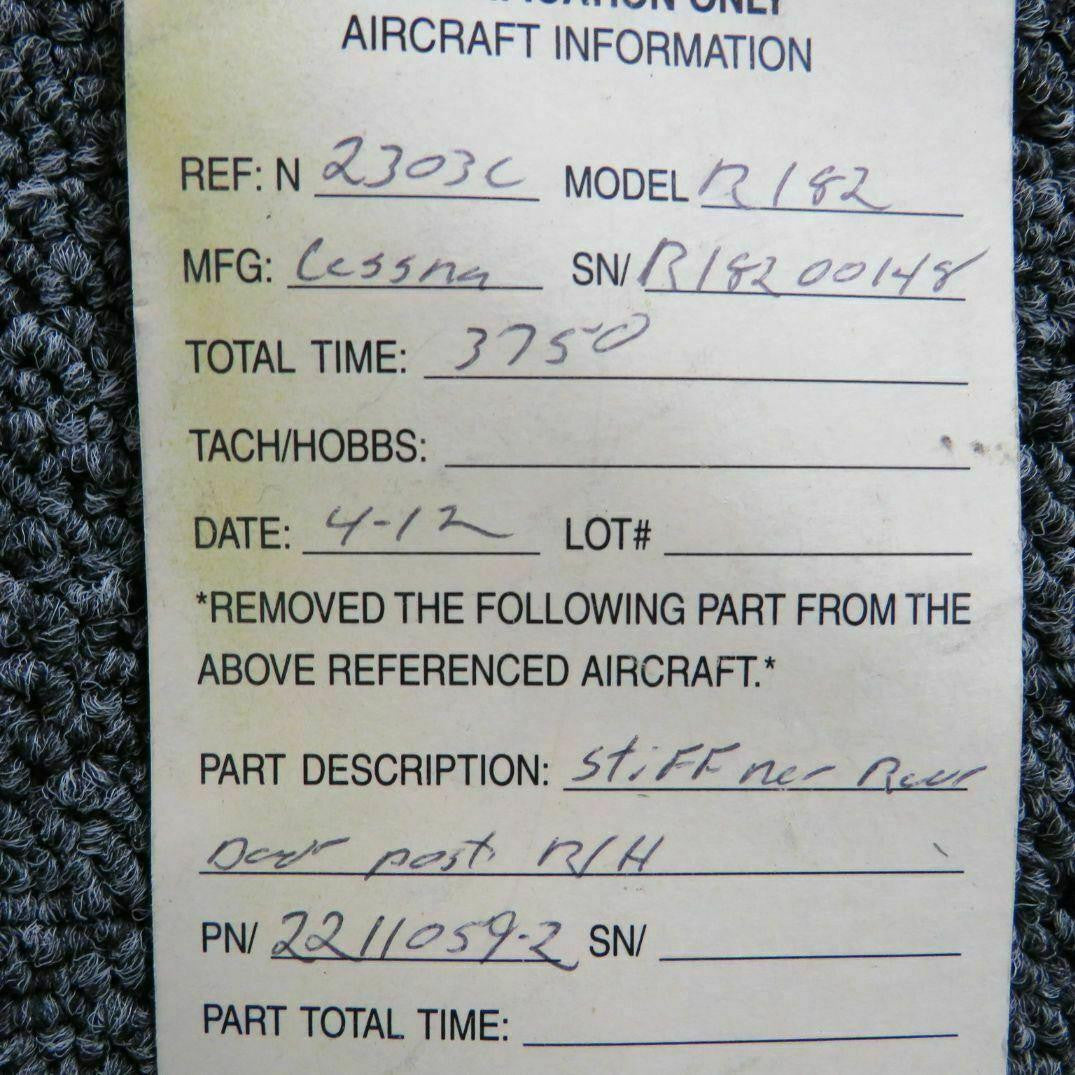 ONLY
AIRCRAFT INFORMATION
REF: N 2303C MODEL R182
MFG: Cessna SN/ R18200148
TOTAL TIME: 3750
TACH/HOBBS:
DATE: 4-12 LOT#
*REMOVED THE FOLLOWING PART FROM THE
ABOVE REFERENCED AIRCRAFT.*
PART DESCRIPTION: StiFFner Rear
Door post R/H
PN/ 2211059-2 SN/
PART TOTAL TIME: